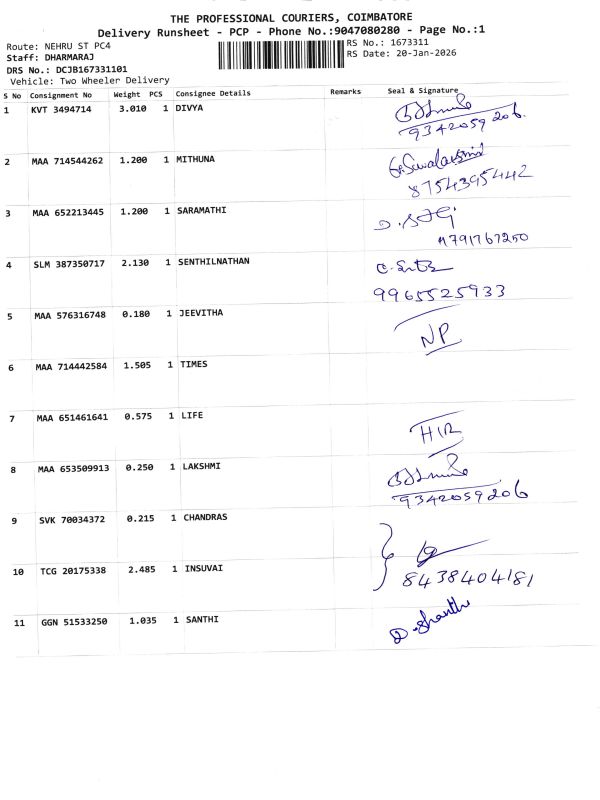 THE PROFESSIONAL COURIERS, COIMBATORE
Delivery Runsheet - PCP - Phone No.:9047080280 - Page No.:1
Route: NEHRU ST PC4 RS No.: 1673311
Staff: DHARMARAJ RS Date: 20-Jan-2026
DRS No.: DCJB167331101
Vehicle: Two Wheeler Delivery
S No Consignment No Weight PCS Consignee Details Remarks Seal & Signature
1 KVT 3494714 3.010 1 DIVYA
9342059206
2 MAA 714544262 1.200 1 MITHUNA
8754395442
3 MAA 652213445 1.200 1 SARAMATHI
9791767250
4 SLM 387350717 2.130 1 SENTHILNATHAN
9965525933
5 MAA 576316748 0.180 1 JEEVITHA
NP
6 MAA 714442584 1.505 1 TIMES
7 MAA 651461641 0.575 1 LIFE
8 MAA 653509913 0.250 1 LAKSHMI
9342059206
9 SVK 70034372 0.215 1 CHANDRAS
10 TCG 20175338 2.485 1 INSUVAI
8438404181
11 GGN 51533250 1.035 1 SANTHI
D. Shanthi